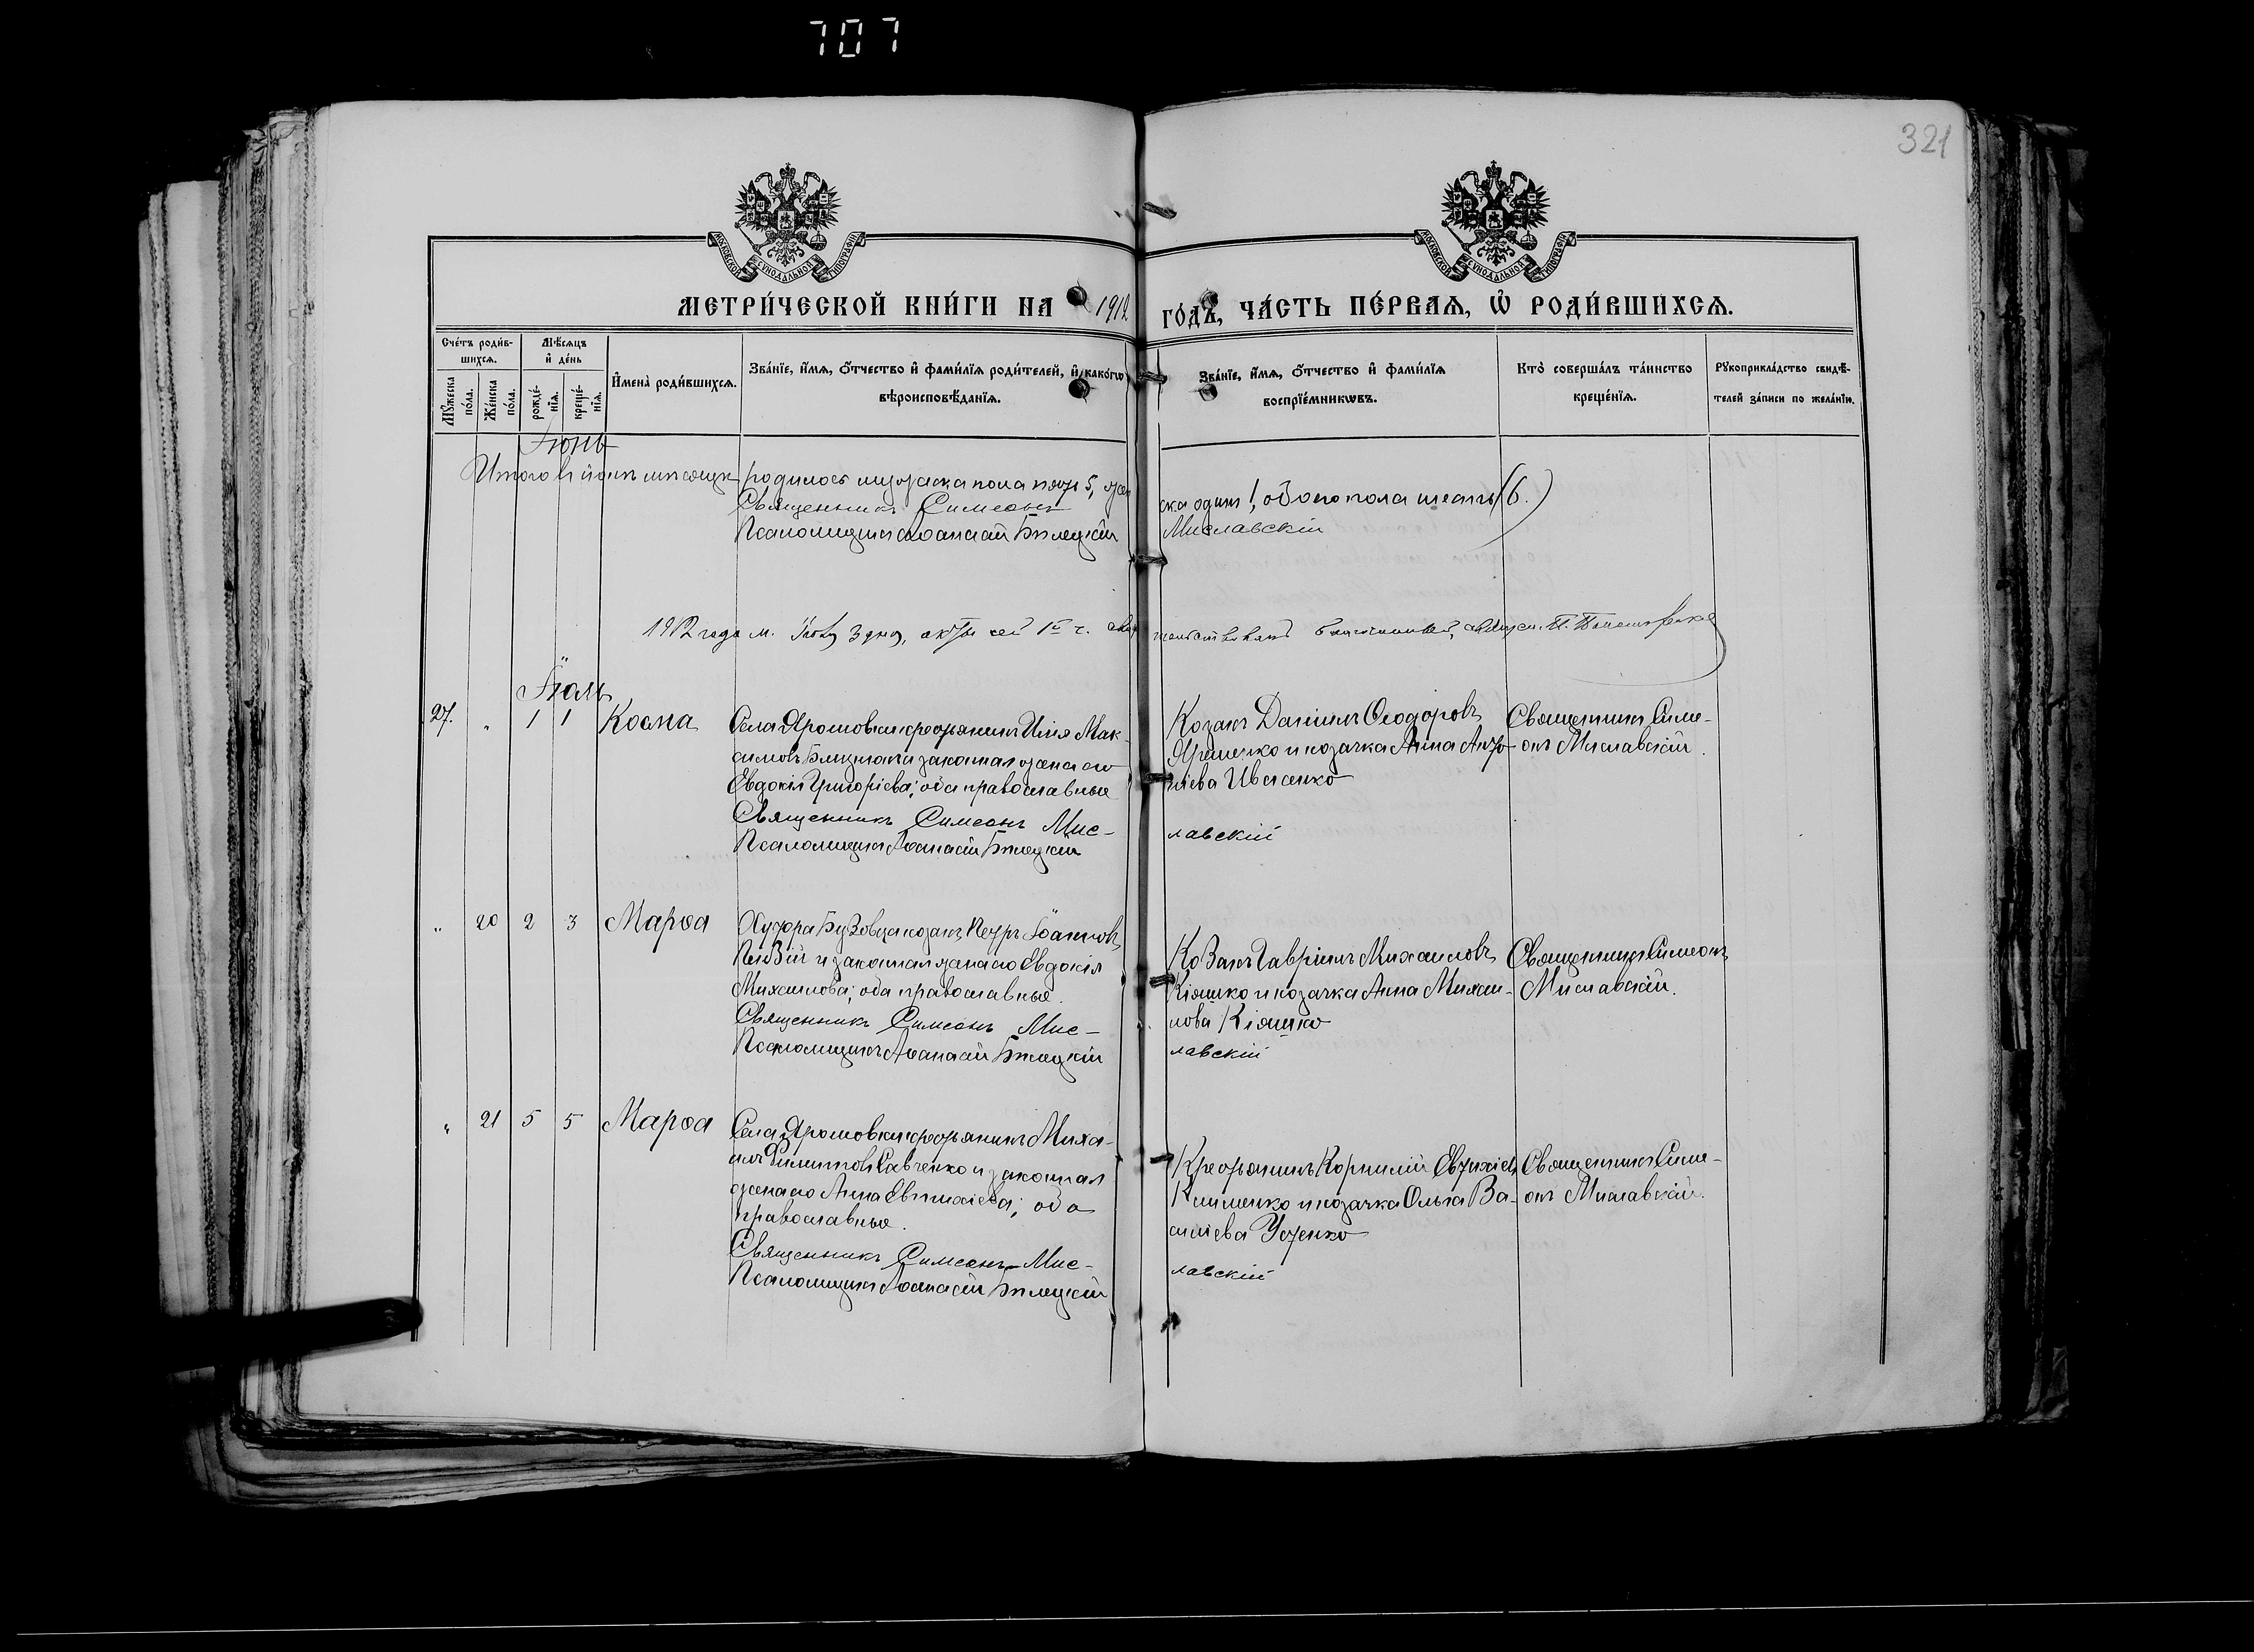 707
321
МОСКОВСКОЙ СѴНОДАЛЬНОЙ ТИПОГРАФІИ
МОСКОВСКОЙ СѴНОДАЛЬНОЙ ТИПОГРАФІИ
МЕТРИ́ЧЕСКОЙ КНИ́ГИ НА 1912 ГО́ДЪ, ЧА́СТЬ ПЕ́РВАѦ, Ѡ РОДИ́ВШИХСѦ.
Сче́тъ роди́в-
шихсѧ.
Мꙋ́жеска по́ла.
Же́нска по́ла.
Мѣ́сѧцъ
и҆ де́нь
рожде́-
нїѧ.
креще́-
нїѧ.
И҆мена̀ роди́вшихсѧ.
Зва́нїе, и҆́мѧ, ѻ҆́тчество и҆ фами́лїѧ роди́телей, и҆ како́гѡ
вѣроисповѣ́данїѧ.
Зва́нїе, и҆́мѧ, ѻ҆́тчество и҆ фами́лїѧ
воспрїе́мникѡвъ.
Кто̀ соверша́лъ та́инство
креще́нїѧ.
Рꙋкоприкла́дство свидѣ́-
телей за́писи по жела́нїю.
Іюнь
Итого въ іюнѣ мѣсяцѣ родилось мужеска пола пять 5, жен
ска одинъ 1, обоего пола шесть (6.)
Священникъ Симеонъ Миславскій
Псаломщикъ Аѳанасій Бѣлецкій
1912 года м. Іюля 3 дня, сей 1й ч.
Іюль
27. " 1 1 Косма
Села Ярошовки крестьянинъ Илія Мак-
симовъ Близнюкъ и законная жена его
Евдокія Григоріева; оба православные
Священникъ Симеонъ Мис-
лавскій
Псаломщикъ Аѳанасій Бѣлецкій
Козакъ Даніилъ Ѳеодоровъ
Яременко и козачка Анна Анто-
ніева Ивасенко
Священникъ Симе-
онъ Миславскій.
" 20 2 3 Марѳа
Хутора Бузовца козакъ Петръ Іоанновъ
и законная жена его Евдокія
Михаилова; оба православные.
Священникъ Симеонъ Мис-
лавскій
Псаломщикъ Аѳанасій Бѣлецкій
Козакъ Гавріилъ Михаиловъ
Кіяшко и козачка Анна Михаи-
лова Кіяшко
Священникъ Симеонъ
Миславскій.
" 21 5 5 Марѳа
Села Ярошовки крестьянинъ Миха-
илъ Филипповъ Савченко и законная
жена его Анна Евтихіева; оба
православные.
Священникъ Симеонъ Мис-
лавскій
Псаломщикъ Аѳанасій Бѣлецкій
Крестьянинъ Корнилій Евтихіевъ
Клименко и козачка Ольга Ва-
силіева Усенко
Священникъ Симе-
онъ Миславскій.